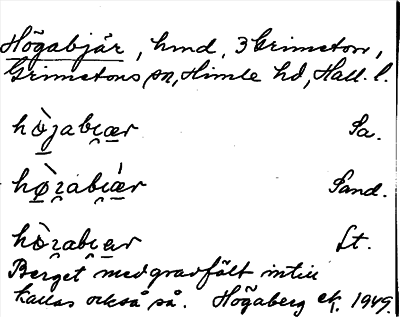 Högabjär, hmd, 3 Grimeton,
Grimetons sn, Himle hd, Hall. l.
hò̱jabı̯æ̱r Sa.
hø̱̀ʐabı̯ǽ̱r Sand.
hòʐabı̯ær Lt.
Berget med gravfält intill
kallas också så. Högaberg ek. 1949.